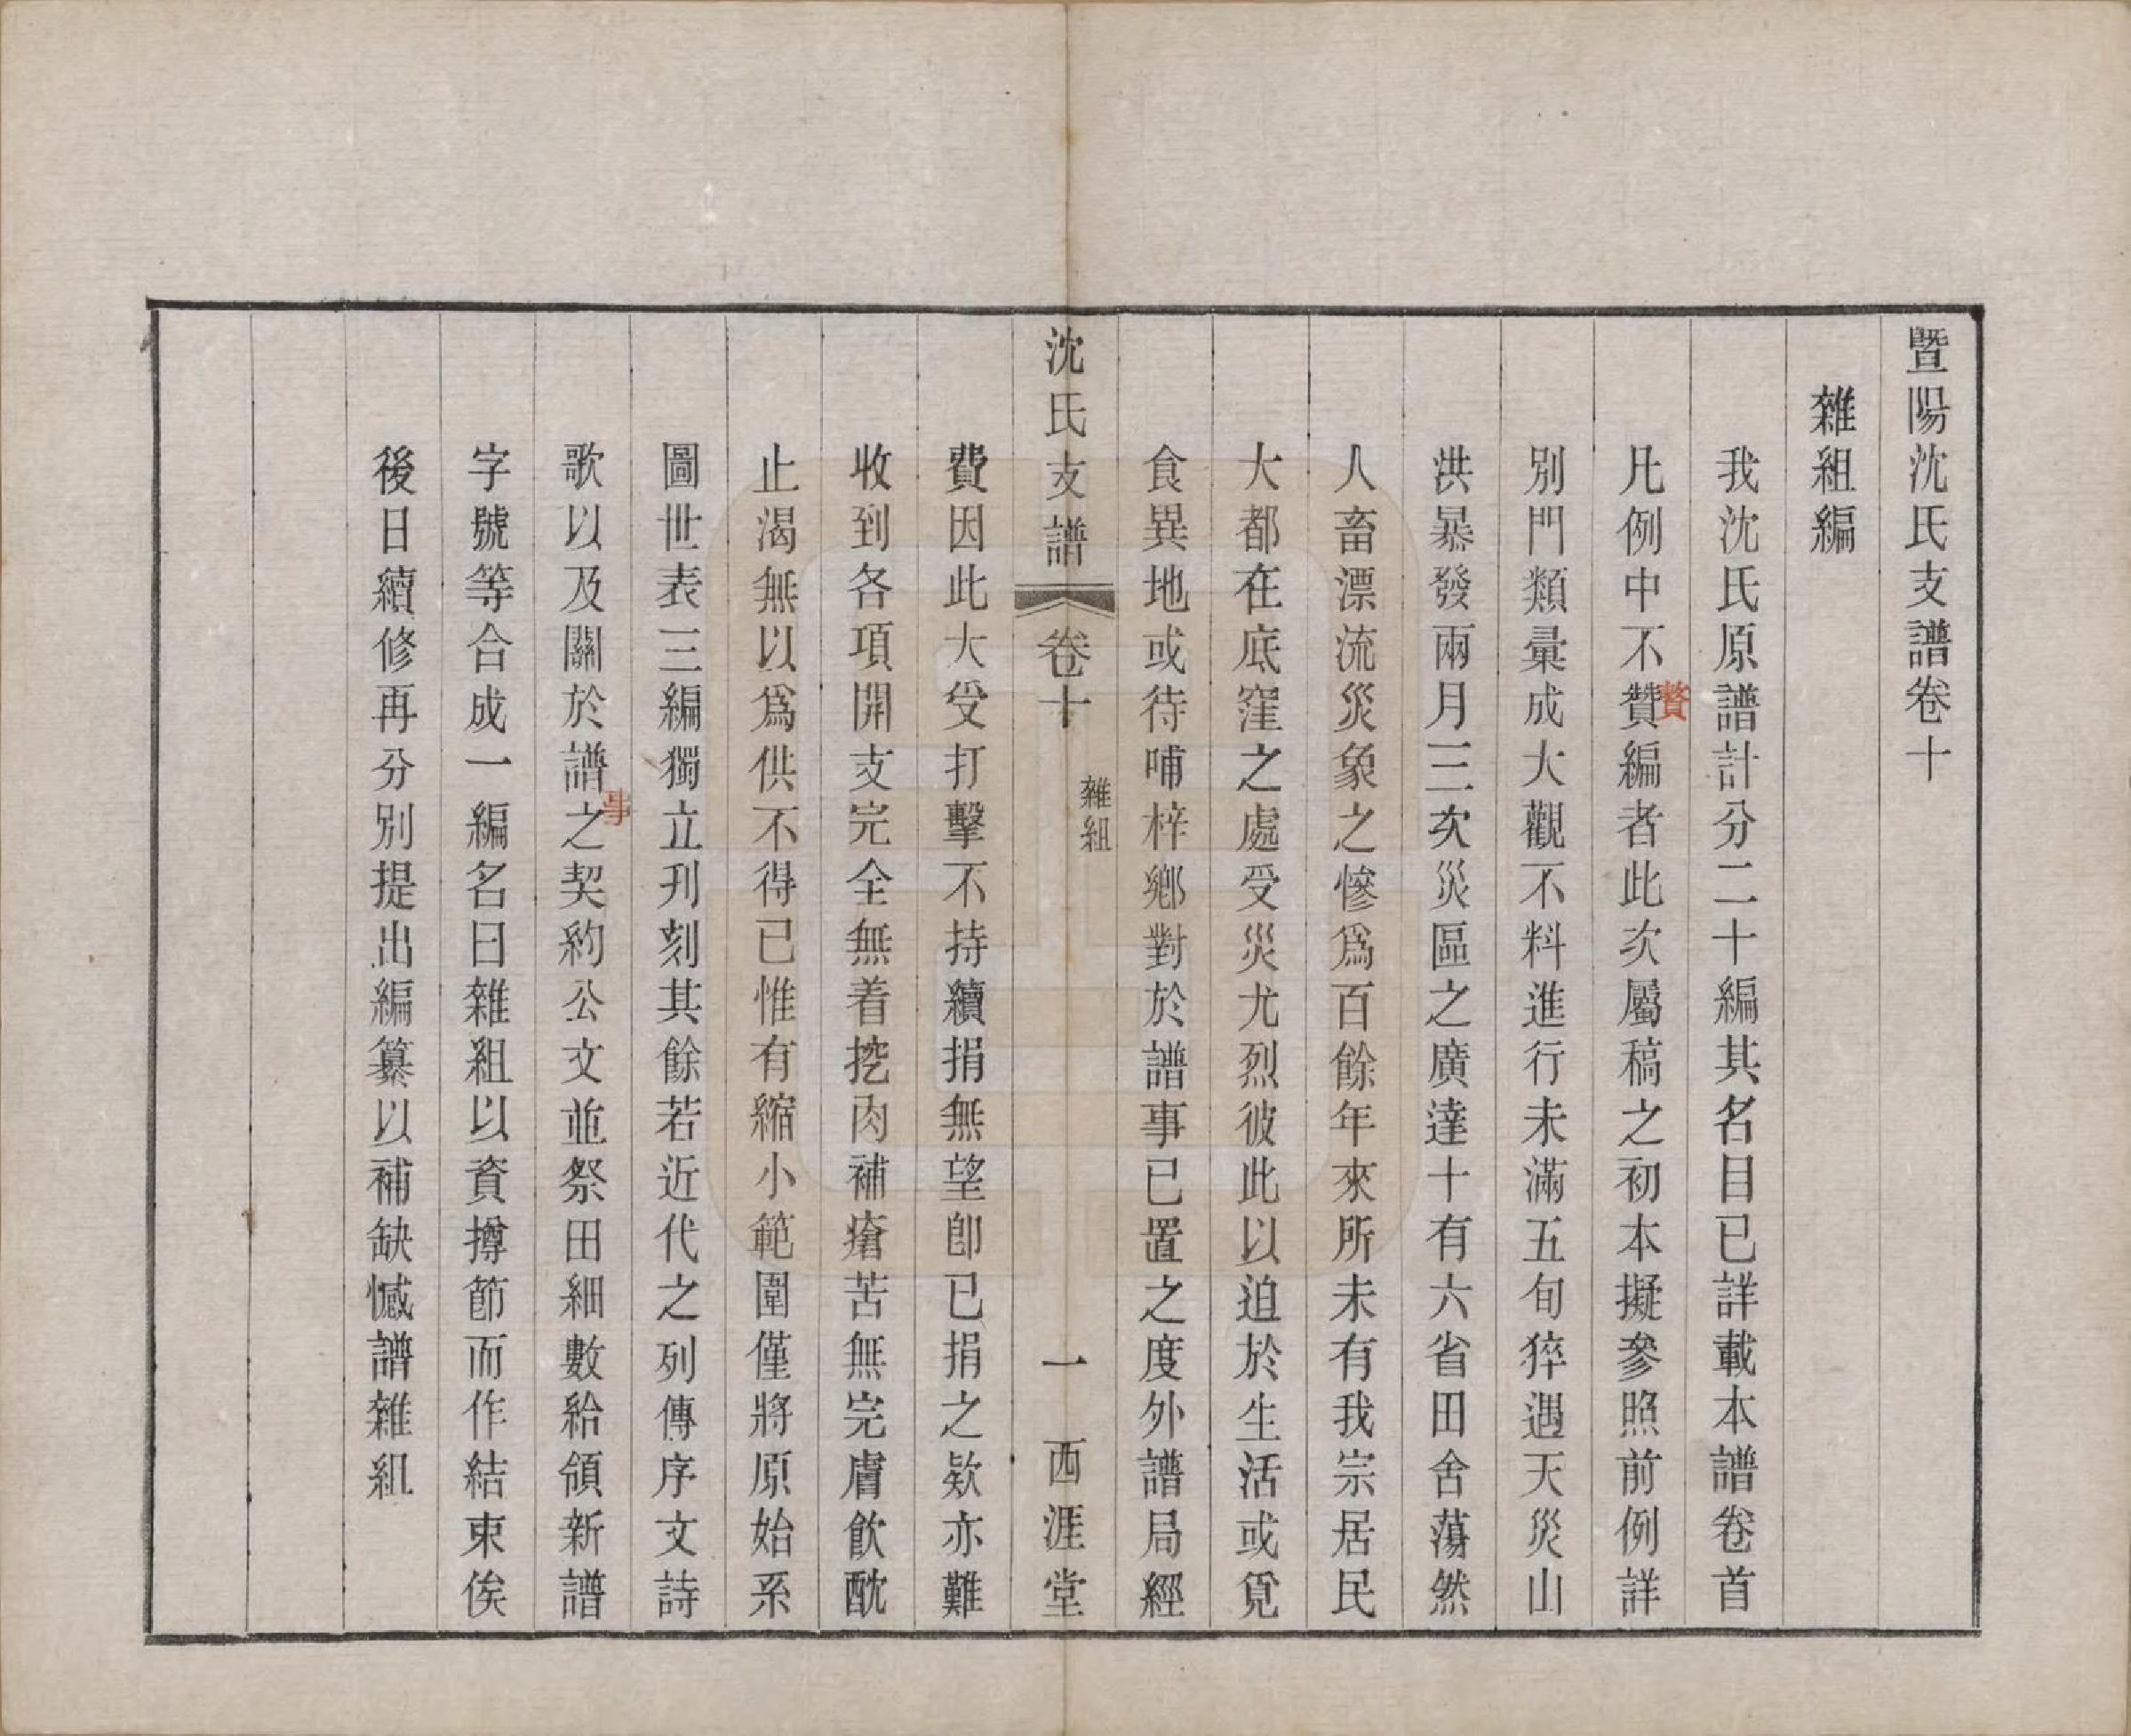 暨陽沈氏支譜卷十
雜組編
我沈氏原譜計分二十編其名目已詳載本譜卷首
凡例中不贊編者此次屬稿之初本擬參照前例詳
贅
別門類彙成大觀不料進行未滿五旬猝遇天災山
洪暴發兩月三次災區之廣達十有六省田舍蕩然
人畜漂流災象之慘爲百餘年來所未有我宗居民
大都在底窪之處受災尤烈彼此以迫於生活或覓
食異地或待哺梓鄉對於譜事已置之度外譜局經
沈氏支譜 卷十 雜組 一 西涯堂
費因此大受打擊不持續捐無望卽已捐之欵亦難
收到各項開支完全無着挖肉補瘡苦無完膚飮酖
止渴無以爲供不得已惟有縮小範圍僅將原始系
圖世表三編獨立刋刻其餘若近代之列傳序文詩
歌以及關於譜之契約公文並祭田細數給領新譜
事
字號等合成一編名曰雜組以資撙節而作結束俟
後日續修再分別提出編纂以補缺憾譜雜組